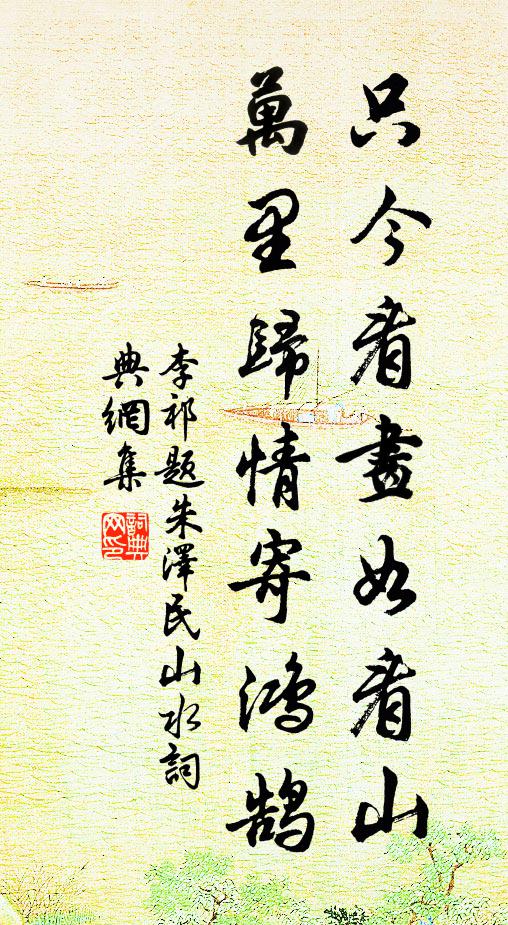 只今看畫如看山
萬里歸情寄鴻鵠
李祁题朱澤民山水詞
典網集
詞典
网印